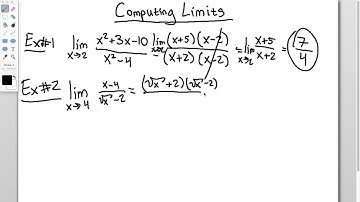 Computing Limits
Ex#1 lim x→2 x²+3x-10 / x²-4 = lim x→2 (x+5)(x-2) / (x+2)(x-2) = lim x→2 x+5 / x+2 = 7/4
Ex#2 lim x→4 x-4 / √x-2 = (√x+2)(√x-2)